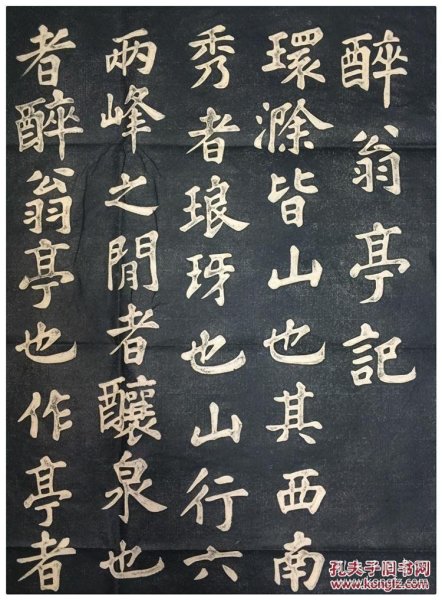 醉翁亭記
環滁皆山也其西南
秀者琅玡也山行六
兩峰之閒者釀泉也
者醉翁亭也作亭者
孔夫子旧书网
www.kongfz.com